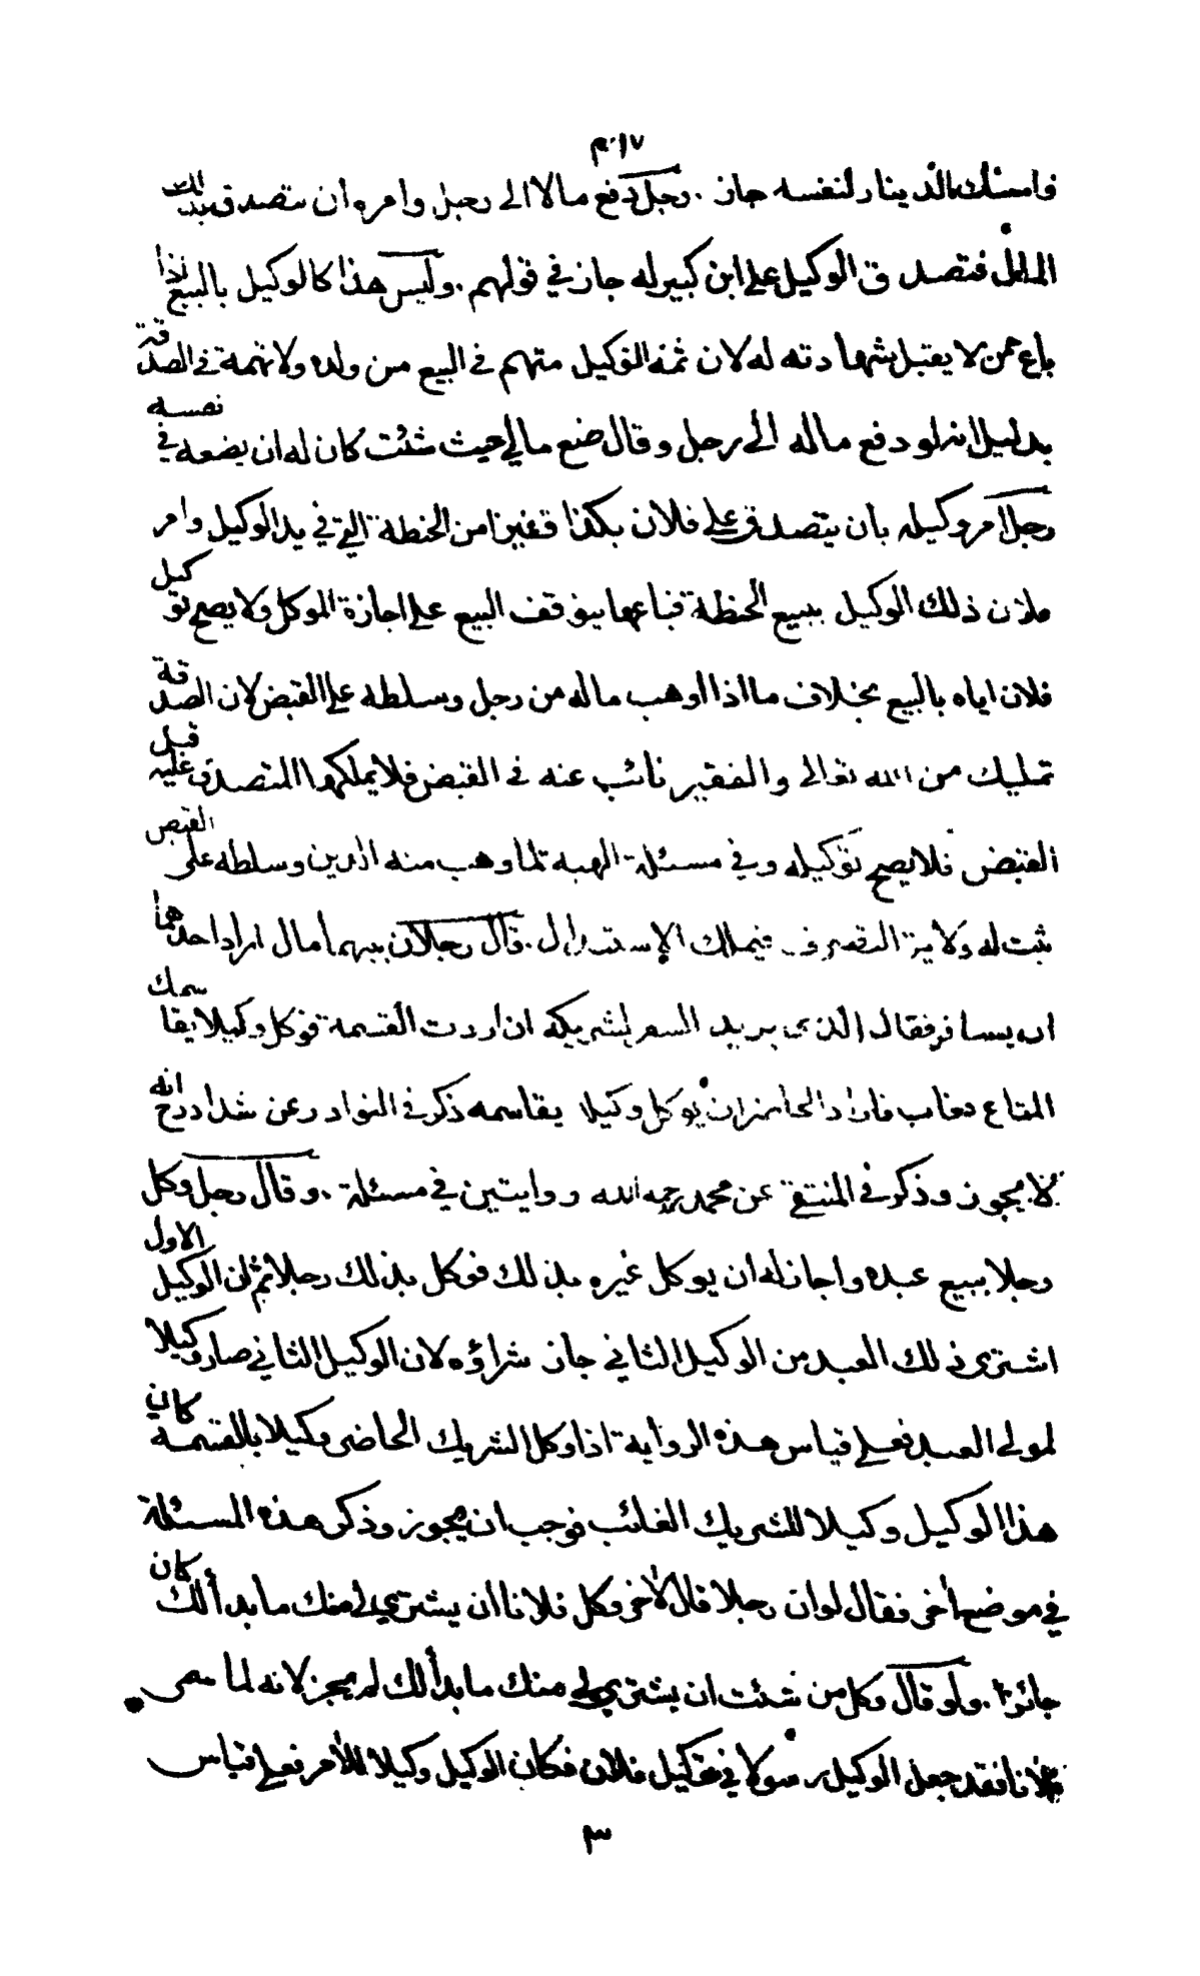 فامسك الدينار لنفسه جاز . رجل دفع مالا الى رجل وامره ان يتصدق بذلك
المال فتصدق الوكيل على ابن كبير له جاز في قولهم . وليس هذا كالوكيل بالبيع اذا
باع ممن لا يقبل شهادته له لان ثمه الوكيل متهم في البيع من ولده ولا تهمة في الصدقة
بدليل انه لو دفع ماله الى رجل وقال ضع مالي حيث شئت كان له ان يضعه في نفسه
رجل امر وكيله بان يتصدق على فلان بكذا قفيزا من الحنطة التي في يد الوكيل وامر
فلان ذلك الوكيل ببيع الحنطة فباعها يتوقف البيع على اجازة الموكل ولا يصح توكيل
فلان اياه بالبيع بخلاف ما اذا اوهب ماله من رجل وسلطه على القبض لان الصدقة
تمليك من الله تعالى والفقير نائب عنه في القبض فلا يملكها المتصدق عليه قبل
القبض فلا يصح توكيله وفي مسئلة الهبة لما وهب منه الدين وسلطه على القبض
ثبت له ولاية التصرف فيملك الاستبدال . قال رجلان بينهما مال اراد احدهما
ان يسافر فقال الذي يريد السفر لشريكه ان اردت القسمة فوكل وكيلا يقاسمك
المتاع فغاب فاراد الحاضر ان يوكل وكيلا يقاسمه ذكر في النوادر عن شداد رح انه
لا يجوز وذكر في المنتقى عن محمد رحمه الله روايتين في مسئلة . وقال رجل وكل
رجلا ببيع عبده واجاز له ان يوكل غيره بذلك فوكل بذلك رجلا ثم ان الوكيل الاول
اشترى ذلك العبد من الوكيل الثاني جاز شراؤه لان الوكيل الثاني صار وكيلا
لمولى العبد فعلى قياس هذه الرواية اذا وكل الشريك الحاضر وكيلا بالقسمة كان
هذا الوكيل وكيلا للشريك الغائب فوجب ان يجوز وذكر هذه المسئلة
في موضع اخر فقال لو ان رجلا قال لاخر وكل فلانا ان يشتري لي منك ما بدا لك كان
جائزا . ولو قال وكل من شئت ان يشتري لي منك ما بدا لك لم يجز لانه لما سمى
فلانا فقد جعل الوكيل رسولا في توكيل فلان فكان الوكيل وكيلا للآمر فعلى قياس
٣